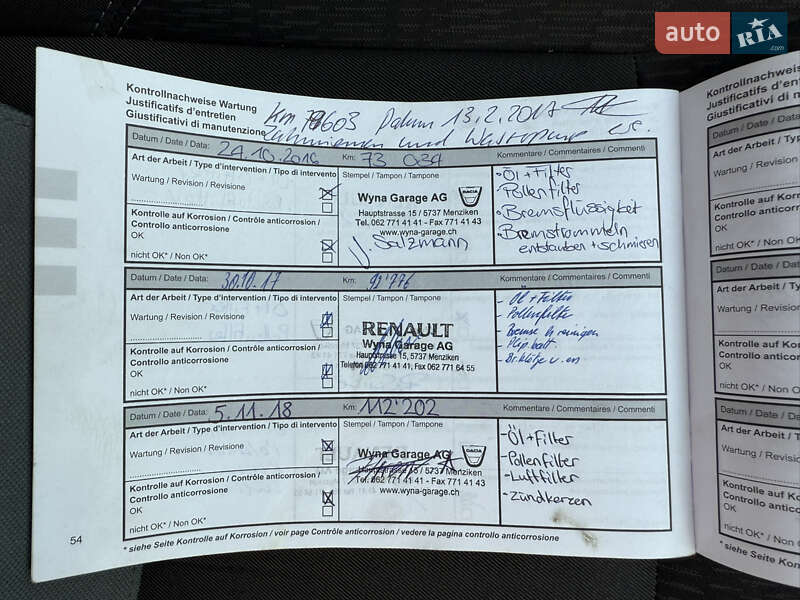 auto RIA.com
Kontrollnachweise Wartung
Justificatifs d'entretien
Giustificativi di manutenzione
Km 603 Datum 13.2.2017
Zahnriemen und Wasserpumpe
Datum / Date / Data: 24.10.2016 Km: 73 034 Kommentare / Commentaires / Commenti
Art der Arbeit / Type d'intervention / Tipo di intervento
Wartung / Revision / Revisione
Kontrolle auf Korrosion / Contrôle anticorrosion /
Controllo anticorrosione
OK
nicht OK* / Non OK*
Stempel / Tampon / Tampone
Wyna Garage AG DACIA
Hauptstrasse 15 / 5737 Menziken
Tel. 062 771 41 41 - Fax 771 41 43
www.wyna-garage.ch
J. Salzmann
• Öl + Filter
• Pollenfilter
• Bremsflüssigkeit
• Bremstrommeln
entstauben + schmieren
Datum / Date / Data: 30.10.17 Km: 92'776 Kommentare / Commentaires / Commenti
Art der Arbeit / Type d'intervention / Tipo di intervento
Wartung / Revision / Revisione
Kontrolle auf Korrosion / Contrôle anticorrosion /
Controllo anticorrosione
OK
nicht OK* / Non OK*
Stempel / Tampon / Tampone
RENAULT
Wyna Garage AG
Hauptstrasse 15, 5737 Menziken
Telefon 062 771 41 41, Fax 062 771 64 55
- Öl + Filter
- Pollenfilter
- Bremse h reinigen
Datum / Date / Data: 5.11.18 Km: 112'202 Kommentare / Commentaires / Commenti
Art der Arbeit / Type d'intervention / Tipo di intervento
Wartung / Revision / Revisione
Kontrolle auf Korrosion / Contrôle anticorrosion /
Controllo anticorrosione
OK
nicht OK* / Non OK*
Stempel / Tampon / Tampone
Wyna Garage AG DACIA
Hauptstrasse 15 / 5737 Menziken
Tel. 062 771 41 41 - Fax 771 41 43
www.wyna-garage.ch
- Öl + Filter
- Pollenfilter
- Luftfilter
- Zündkerzen
54
* siehe Seite Kontrolle auf Korrosion / voir page Contrôle anticorrosion / vedere la pagina controllo anticorrosione
Kontrollnachweise
Justificatifs d'entre
Giustificativi di ma
Datum / Date / Data:
Art der Arbeit / Type d
Wartung / Revision /
Kontrolle auf Korros
Controllo anticorrosi
OK
nicht OK* / Non OK*
Datum / Date / Data:
Art der Arbeit / Type
Wartung / Revision
Kontrolle auf Korro
Controllo anticorro
OK
nicht OK* / Non OK*
Datum / Date / Data
Art der Arbeit / Typ
Wartung / Revision
Kontrolle auf Korr
Controllo anticorr
OK
nicht OK* / Non OK
* siehe Seite Kont